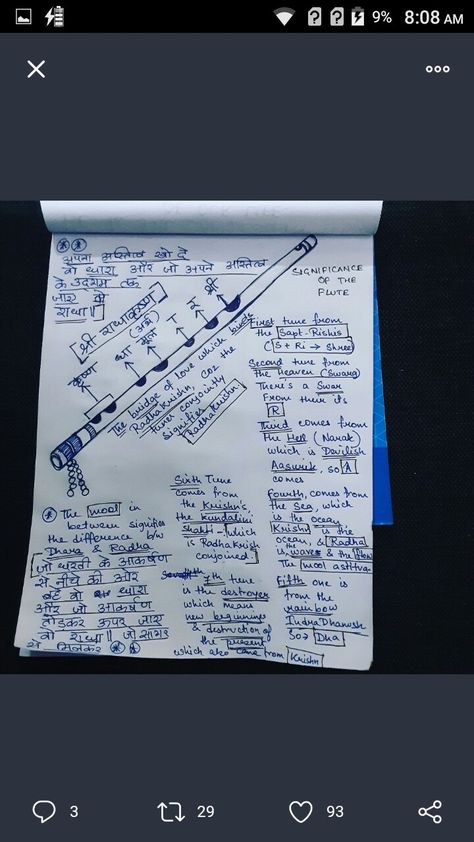 9% 8:08 AM
अपना अस्तित्व खो दे
वो धारा और जो अपने अस्तित्व
के उदगम तक
जाए वो
राधा॥
श्री राधाकृष्ण
कृष्ण धा मूल र श्री
SIGNIFICANCE
OF THE
FLUTE
The bridge of love which binds
RadhaKrishn, coz the
tunes conjointly
signifies
RadhaKrishn
First tune from
the Sapt-Rishis
(S + Ri → Shree)
Second tune from
the Heaven (Swarg)
There's a Swar
From there it's
R
Third comes from
the Hell (Narak)
which is Devilish
Aasurik, so A
comes
Fourth, comes from
the Sea, which
is the ocean
Krishn is the
ocean, & Radha
is the waves & the flow
The mool astitva
Fifth one is
from the
rainbow
IndraDhanush
So → Dha
Sixth Tune
comes from
the Krishn's,
the kundalini
shakti - which
is RadhaKrish
conjoined
7th tune
is the destroyer
which means
new beginnings
& destruction of
the present
which also came from Krishn
The mool in
between signifies
the difference b/w
Dhara & Radha
जो धरती के आकर्षण
से नीचे की ओर
बहे वो धारा
और जो आकर्षण
तोड़कर ऊपर जाए
वो राधा॥ जो सागर
से मिलकर
3 29 93